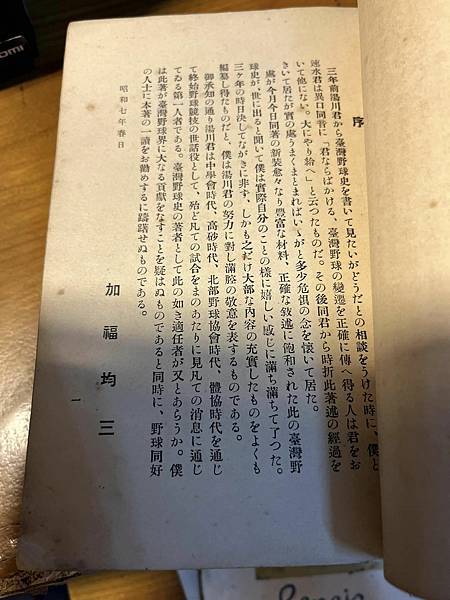 序
三年前湯川君から臺灣野球史を書いて見たいがどうだとの相談をうけた時に、僕と
速水君は異口同音に「君ならばかける、臺灣野球の變遷を正確に傳へ得る人は君をお
いて他にない。大にやり給へ」と云つたものだ。その後同君から時折此著述の經過を
きいて居たが實の處うまくまとまればいゝがと多少危惧の念を懷いて居た。
處が今月今日同著の新裝愈々なり豐富な材料、正確な敘述に飽和された此の臺灣野
球史が、世に出ると聞いて僕は實際自分のことの樣に嬉しい感じに滿ち滿ちて了つた。
三ヶ年の時日決してながきに非ず、しかも之だけ大部な內容の充實したものをよくも
編纂し得たものだと、僕は湯川君の努力に對し滿腔の敬意を表するものである。
御承知の通り湯川君は中學會時代、高砂時代、北部野球協會時代、體協時代を通じ
て終始野球競技の世話役として、殆ど凡ての試合をまのあたりに見凡ての消息に通じ
てゐる第一人者である。臺灣野球史の著者として此の如き適任者が又とあらうか。僕
は此著が臺灣野球界に大なる貢獻をなすことを疑はぬものであると同時に、野球同好
の人士に本著の一讀をお勸めするに躊躇せぬものである。
昭和七年春日
加福均三
一
omi